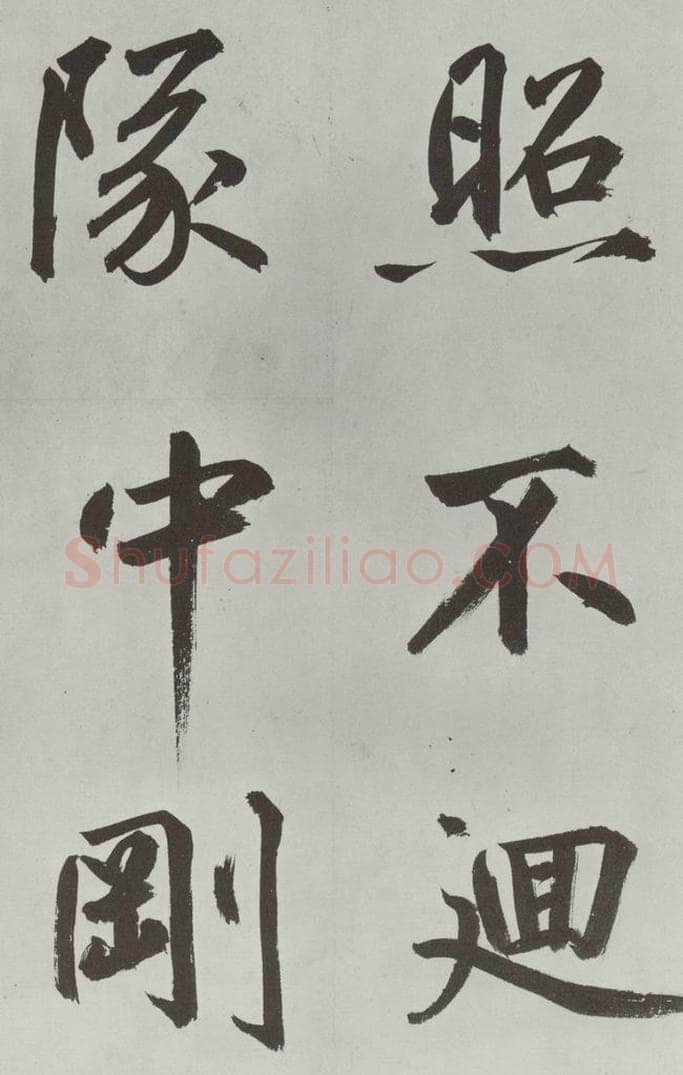 照不迴
隊中剛
Shufaziliao.COM